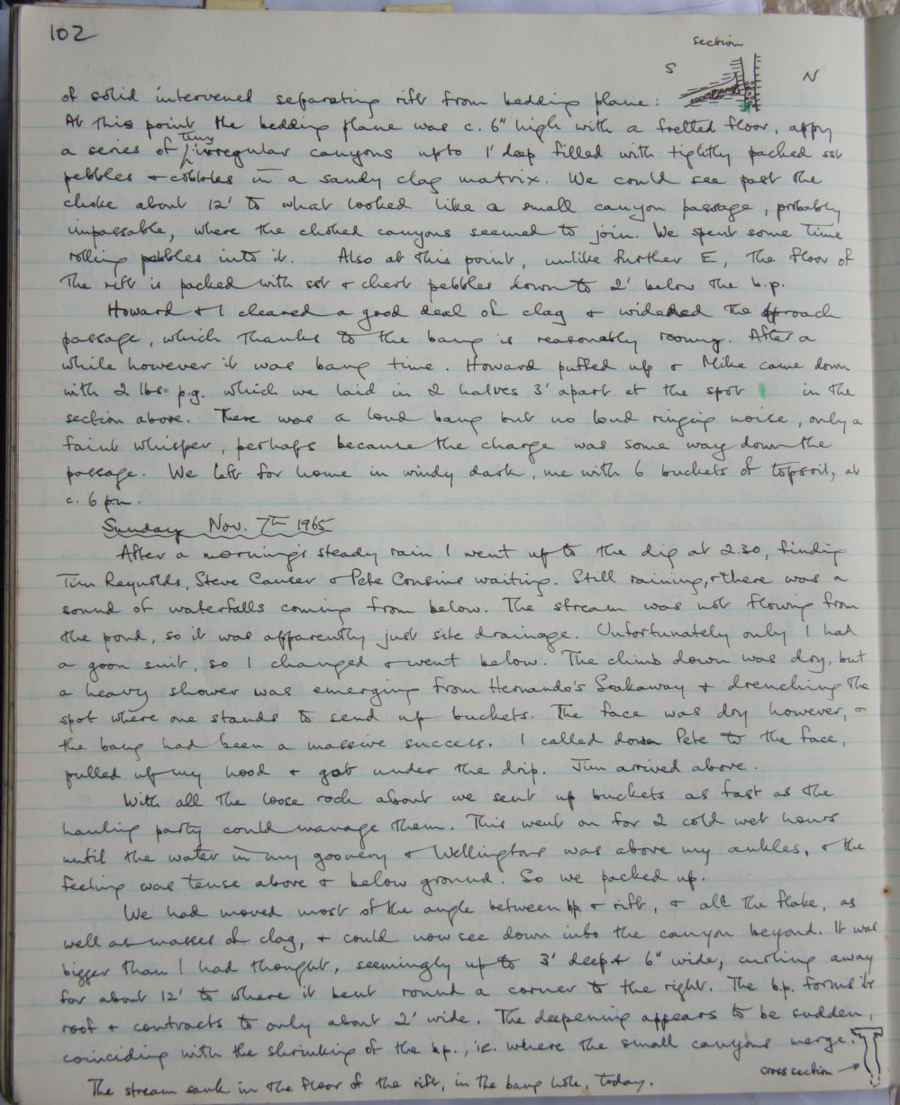 102
section
S N
of solid intervened separating rift from bedding plane:
At this point the bedding plane was c. 6" high with a fretted floor, appy
a series of tiny irregular canyons upto 1' deep filled with tightly packed sst
pebbles + cobbles in a sandy clag matrix. We could see past the
choke about 12' to what looked like a small canyon passage, probably
impassable, where the choked canyons seemed to join. We spent some time
rolling pebbles into it. Also at this point, unlike further E, the floor of
the rift is packed with sst + chert pebbles down to 2' below the b.p.
Howard + I cleared a good deal of clag + widened the approach
passage, which thanks to the bang is reasonably roomy. After a
while however it was bang time. Howard puffed up + Mike came down
with 2 lbs p.g. which we laid in 2 halves 3' apart at the spot in the
section above. There was a loud bang but no loud ringing noise, only a
faint whisper, perhaps because the charge was some way down the
passage. We left for home in windy dark, me with 6 buckets of topsoil, at
c. 6 pm.
Sunday Nov. 7th 1965
After a morning's steady rain I went up to the dig at 2.30, finding
Tim Reynolds, Steve Causer + Pete Cousins waiting. Still raining, + there was a
sound of waterfalls coming from below. The stream was not flowing from
the pond, so it was apparently just site drainage. Unfortunately only I had
a goon suit, so I changed + went below. The climb down was dry, but
a heavy shower was emerging from Hernando's Soakaway + drenching the
spot where one stands to send up buckets. The face was dry however, +
the bang had been a massive success. I called down Pete to the face,
pulled up my hood + got under the drip. Jim arrived above.
With all the loose rock about we sent up buckets as fast as the
hauling party could manage them. This went on for 2 cold wet hours
until the water in my goonery + Wellingtons was above my ankles, + the
feeling was tense above + below ground. So we packed up.
We had moved most of the angle between bp + rift, + all the flake, as
well as masses of clag, + could now see down into the canyon beyond. It was
bigger than I had thought, seemingly up to 3' deep + 6" wide, curling away
for about 12' to where it bent round a corner to the right. The b.p. forms its
roof + contracts to only about 2' wide. The deepening appears to be sudden,
coinciding with the shrinking of the bp., ie. where the small canyons merge.
cross section →
The stream sank in the floor of the rift, in the bang hole, today.